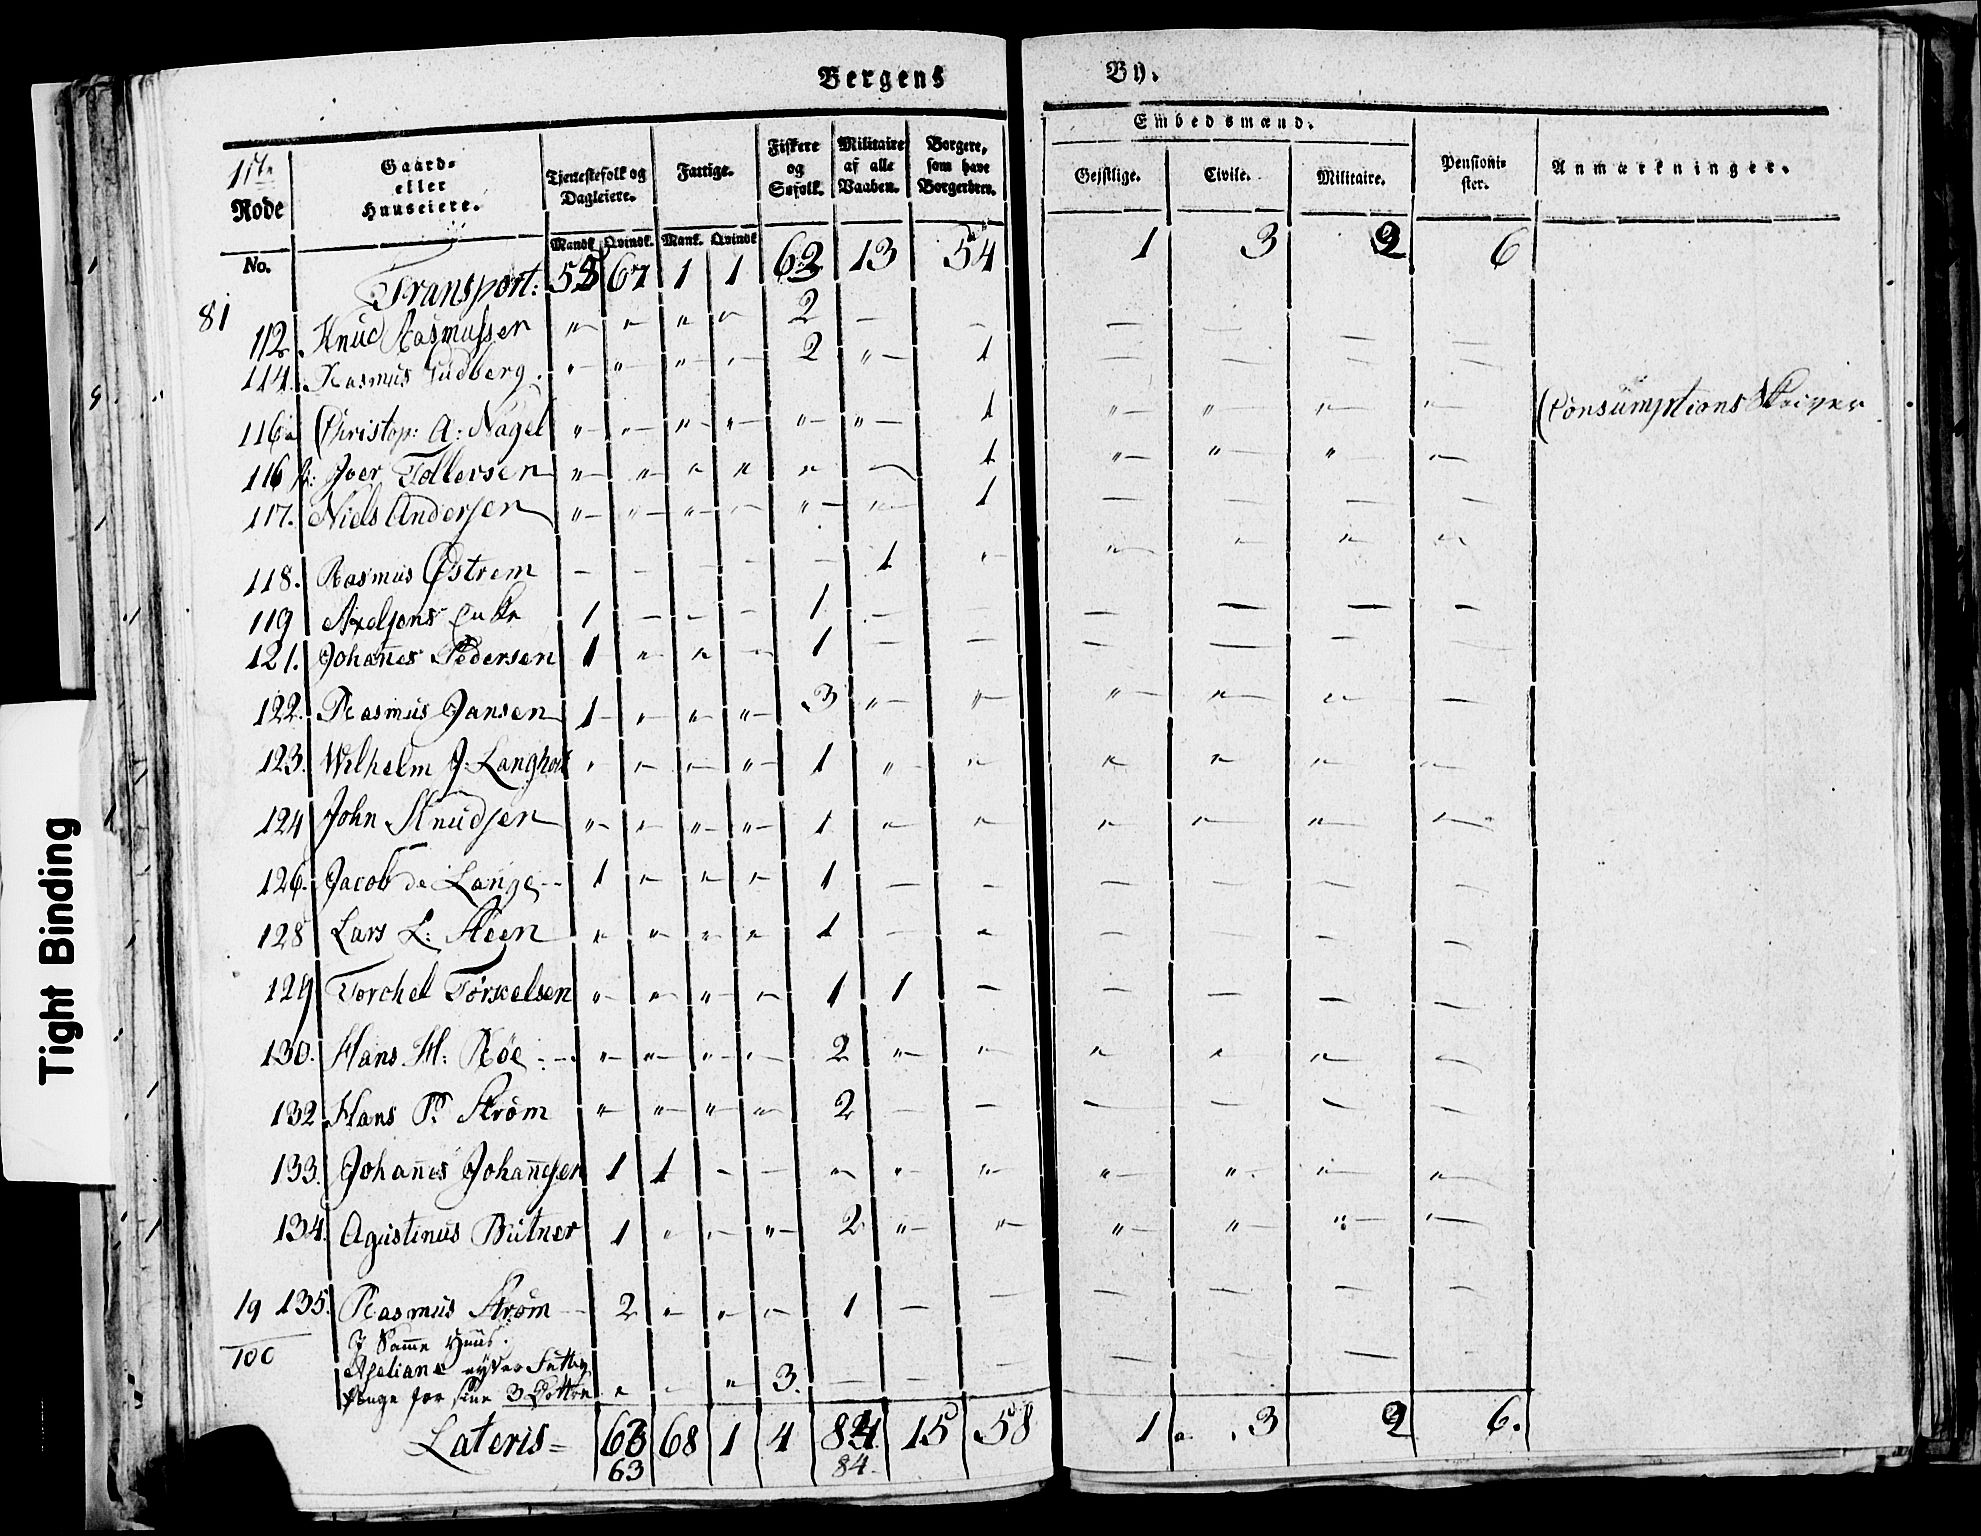 Bergens By.
Embedsmænd.
17te Rode
Gaard- eller Huuseiere.
Tjenestefolk og Dagleiere.
Fattige.
Fiskere og Søfolk.
Militaire af alle Vaaben.
Borgere, som have Borgerbrev.
Gejstlige. Civile. Militaire.
Pensioni- ster.
Anmærkninger.
No. Mandk. Qvindk. Mank. Qvindk.
Transport: 53 67 1 1 62 13 54 1 3 2 6
81
112. Knud Rasmussen " " " " 2 — — — — — —
114. Rasmus Tudberg. " " " " 2 " 1 — — — —
116 a Christop: A: Nagel " " " " " " 1 " " " " Consumptions
116 b: Iver Tollersen " " " " " — 1 " " " "
117. Niels Andersen " " " " " " 1 — — — —
118. Rasmus Østrem — — — — — 1 " " " " "
119 Axelsens Enke 1 — — — 1 — — — — — —
121. Johan̅es Pedersen 1 " " " 1 — — — — — —
122. Rasmus Jansen 1 " " " 3 " " " " " —
123. Wilhelm J. Langhor " " " " 1 " " " " " "
124 John Knudsen " " " " 1 " " " " " "
126. Jacob de Lange 1 " " " 1 — — — — — —
128 Lars L: Steen " " " " 1 — " — — — —
129 Torchel Torkelsen " " " " 1 1 — — — — —
130. Hans M: Røe " " " " 2 " " " " " —
132 Hans P. Strøm " " " " 2 — — — — — —
133. Johan̅es Johan̅esen 1 1 — — " " " " " " "
134. Agustinus Bütner 1 " " " 2 " " " " " "
19 135. Rasmus Strøm 2 " " " 1 — — — — — —
100
I Sam̅e Huus.
nyder Fattig
Penge for sine 3 Døttre " — " 3. — — — — — —
Lateris = 63 68 1 4 84 15 58 1 " 3 2 6.
63 84
Tight Binding